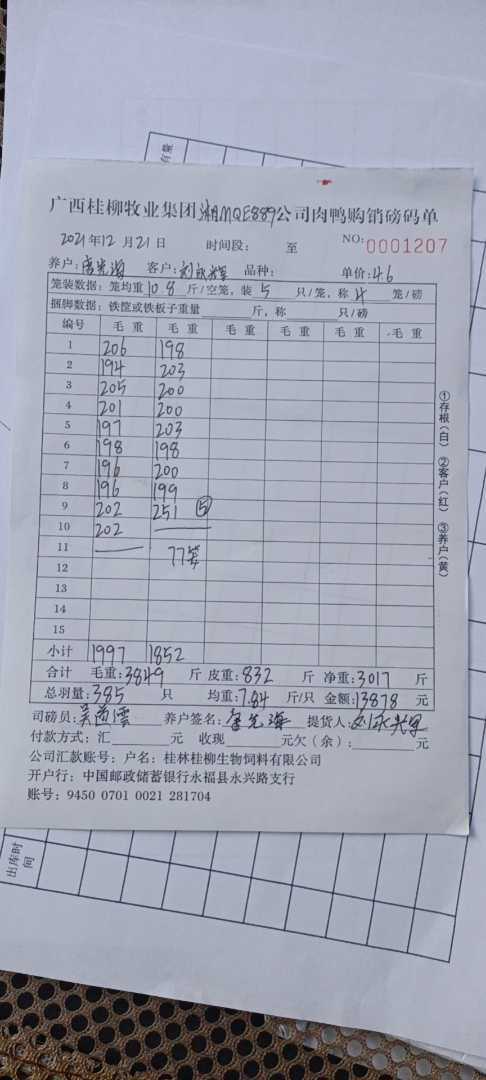 有量
广西桂柳牧业集团湘MQE889公司肉鸭购销磅码单
2021年12月21日 时间段: 至 NO: 0001207
养户: 客户: 品种: 单价:4.6
笼装数据: 笼均重10.8斤/空笼, 装5只/笼, 称4笼/磅
捆脚数据: 铁筐或铁板子重量 斤, 称 只/磅
编号 毛重 毛重 毛重 毛重 毛重 毛重
1 206 198
2 194 203
3 205 200
4 201 200
5 197 203
6 198 198
7 196 200
8 196 199
9 202 251 ⑤
10 202
11 77笼
12
13
14
15
小计 1997 1852
合计 毛重:3849斤 皮重:832斤 净重:3017斤
总羽量:385只 均重:7.84斤/只 金额:13878元
司磅员: 养户签名: 提货人:
付款方式: 汇 元 收现 元欠(余): 元
公司汇款账号: 户名: 桂林桂柳生物饲料有限公司
开户行: 中国邮政储蓄银行永福县永兴路支行
账号: 9450 0701 0021 281704
①存根(白) ②客户(红) ③养户(黄)
出库时间